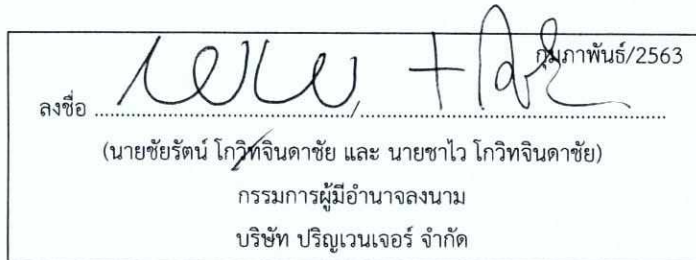 กุมภาพันธ์/2563
ลงชื่อ ........................../..........................
(นายชัยรัตน์ โกวิทจินดาชัย และ นายชาไว โกวิทจินดาชัย)
กรรมการผู้มีอำนาจลงนาม
บริษัท ปริญเวนเจอร์ จำกัด